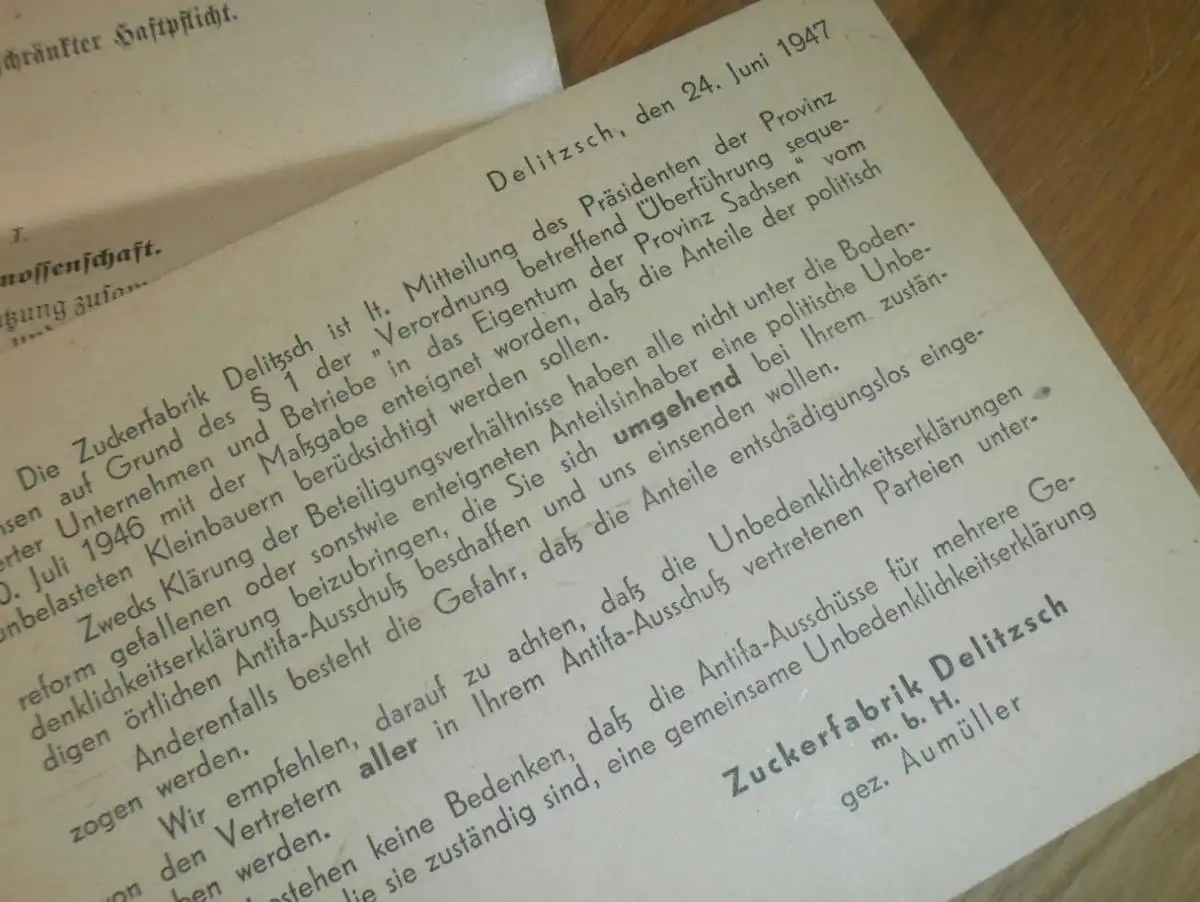 schränkter Haftpflicht.
I.
nossenschaft.
tzung zusam
Delitzsch, den 24. Juni 1947
Die Zuckerfabrik Delitzsch ist lt. Mitteilung des Präsidenten der Provinz
hsen auf Grund des § 1 der „Verordnung betreffend Überführung seque-
erter Unternehmen und Betriebe in das Eigentum der Provinz Sachsen" vom
0. Juli 1946 mit der Maßgabe enteignet worden, daß die Anteile der politisch
unbelasteten Kleinbauern berücksichtigt werden sollen.
Zwecks Klärung der Beteiligungsverhältnisse haben alle nicht unter die Boden-
reform gefallenen oder sonstwie enteigneten Anteilsinhaber eine politische Unbe-
denklichkeitserklärung beizubringen, die Sie sich umgehend bei Ihrem zustän-
digen örtlichen Antifa-Ausschuß beschaffen und uns einsenden wollen.
Anderenfalls besteht die Gefahr, daß die Anteile entschädigungslos einge-
zogen werden.
Wir empfehlen, darauf zu achten, daß die Unbedenklichkeitserklärungen
von den Vertretern aller in Ihrem Antifa-Ausschuß vertretenen Parteien unter-
ben werden.
estehen keine Bedenken, daß die Antifa-Ausschüsse für mehrere Ge-
die sie zuständig sind, eine gemeinsame Unbedenklichkeitserklärung
Zuckerfabrik Delitzsch
m. b. H.
gez. Aumüller